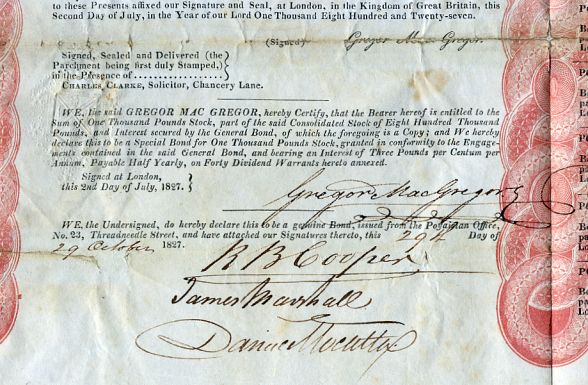 to these Presents affixed our Signature and Seal, at London, in the Kingdom of Great Britain, this
Second Day of July, in the Year of our Lord One Thousand Eight Hundred and Twenty-seven.
(Signed) Gregor Mac Gregor.
Signed, Sealed and Delivered (the
Parchment being first duly Stamped,)
in the Presence of ..................
CHARLES CLARKE, Solicitor, Chancery Lane.
WE, the said GREGOR MAC GREGOR, hereby Certify, that the Bearer hereof is entitled to the
Sum of One Thousand Pounds Stock, part of the said Consolidated Stock of Eight Hundred Thousand
Pounds, and Interest secured by the General Bond, of which the foregoing is a Copy; and We hereby
declare this to be a Special Bond for One Thousand Pounds Stock, granted in conformity to the Engage-
ments contained in the said General Bond, and bearing an Interest of Three Pounds per Centum per
Annum, Payable Half Yearly, on Forty Dividend Warrants hereto annexed.
Signed at London,
this 2nd Day of July, 1827.
Gregor MacGregor
WE, the Undersigned, do hereby declare this to be a genuine Bond, issued from the Poyaisian Office,
No. 23, Threadneedle Street, and have attached our Signatures thereto, this 29th Day of
29 October 1827.
R B Cooper
James Marshall